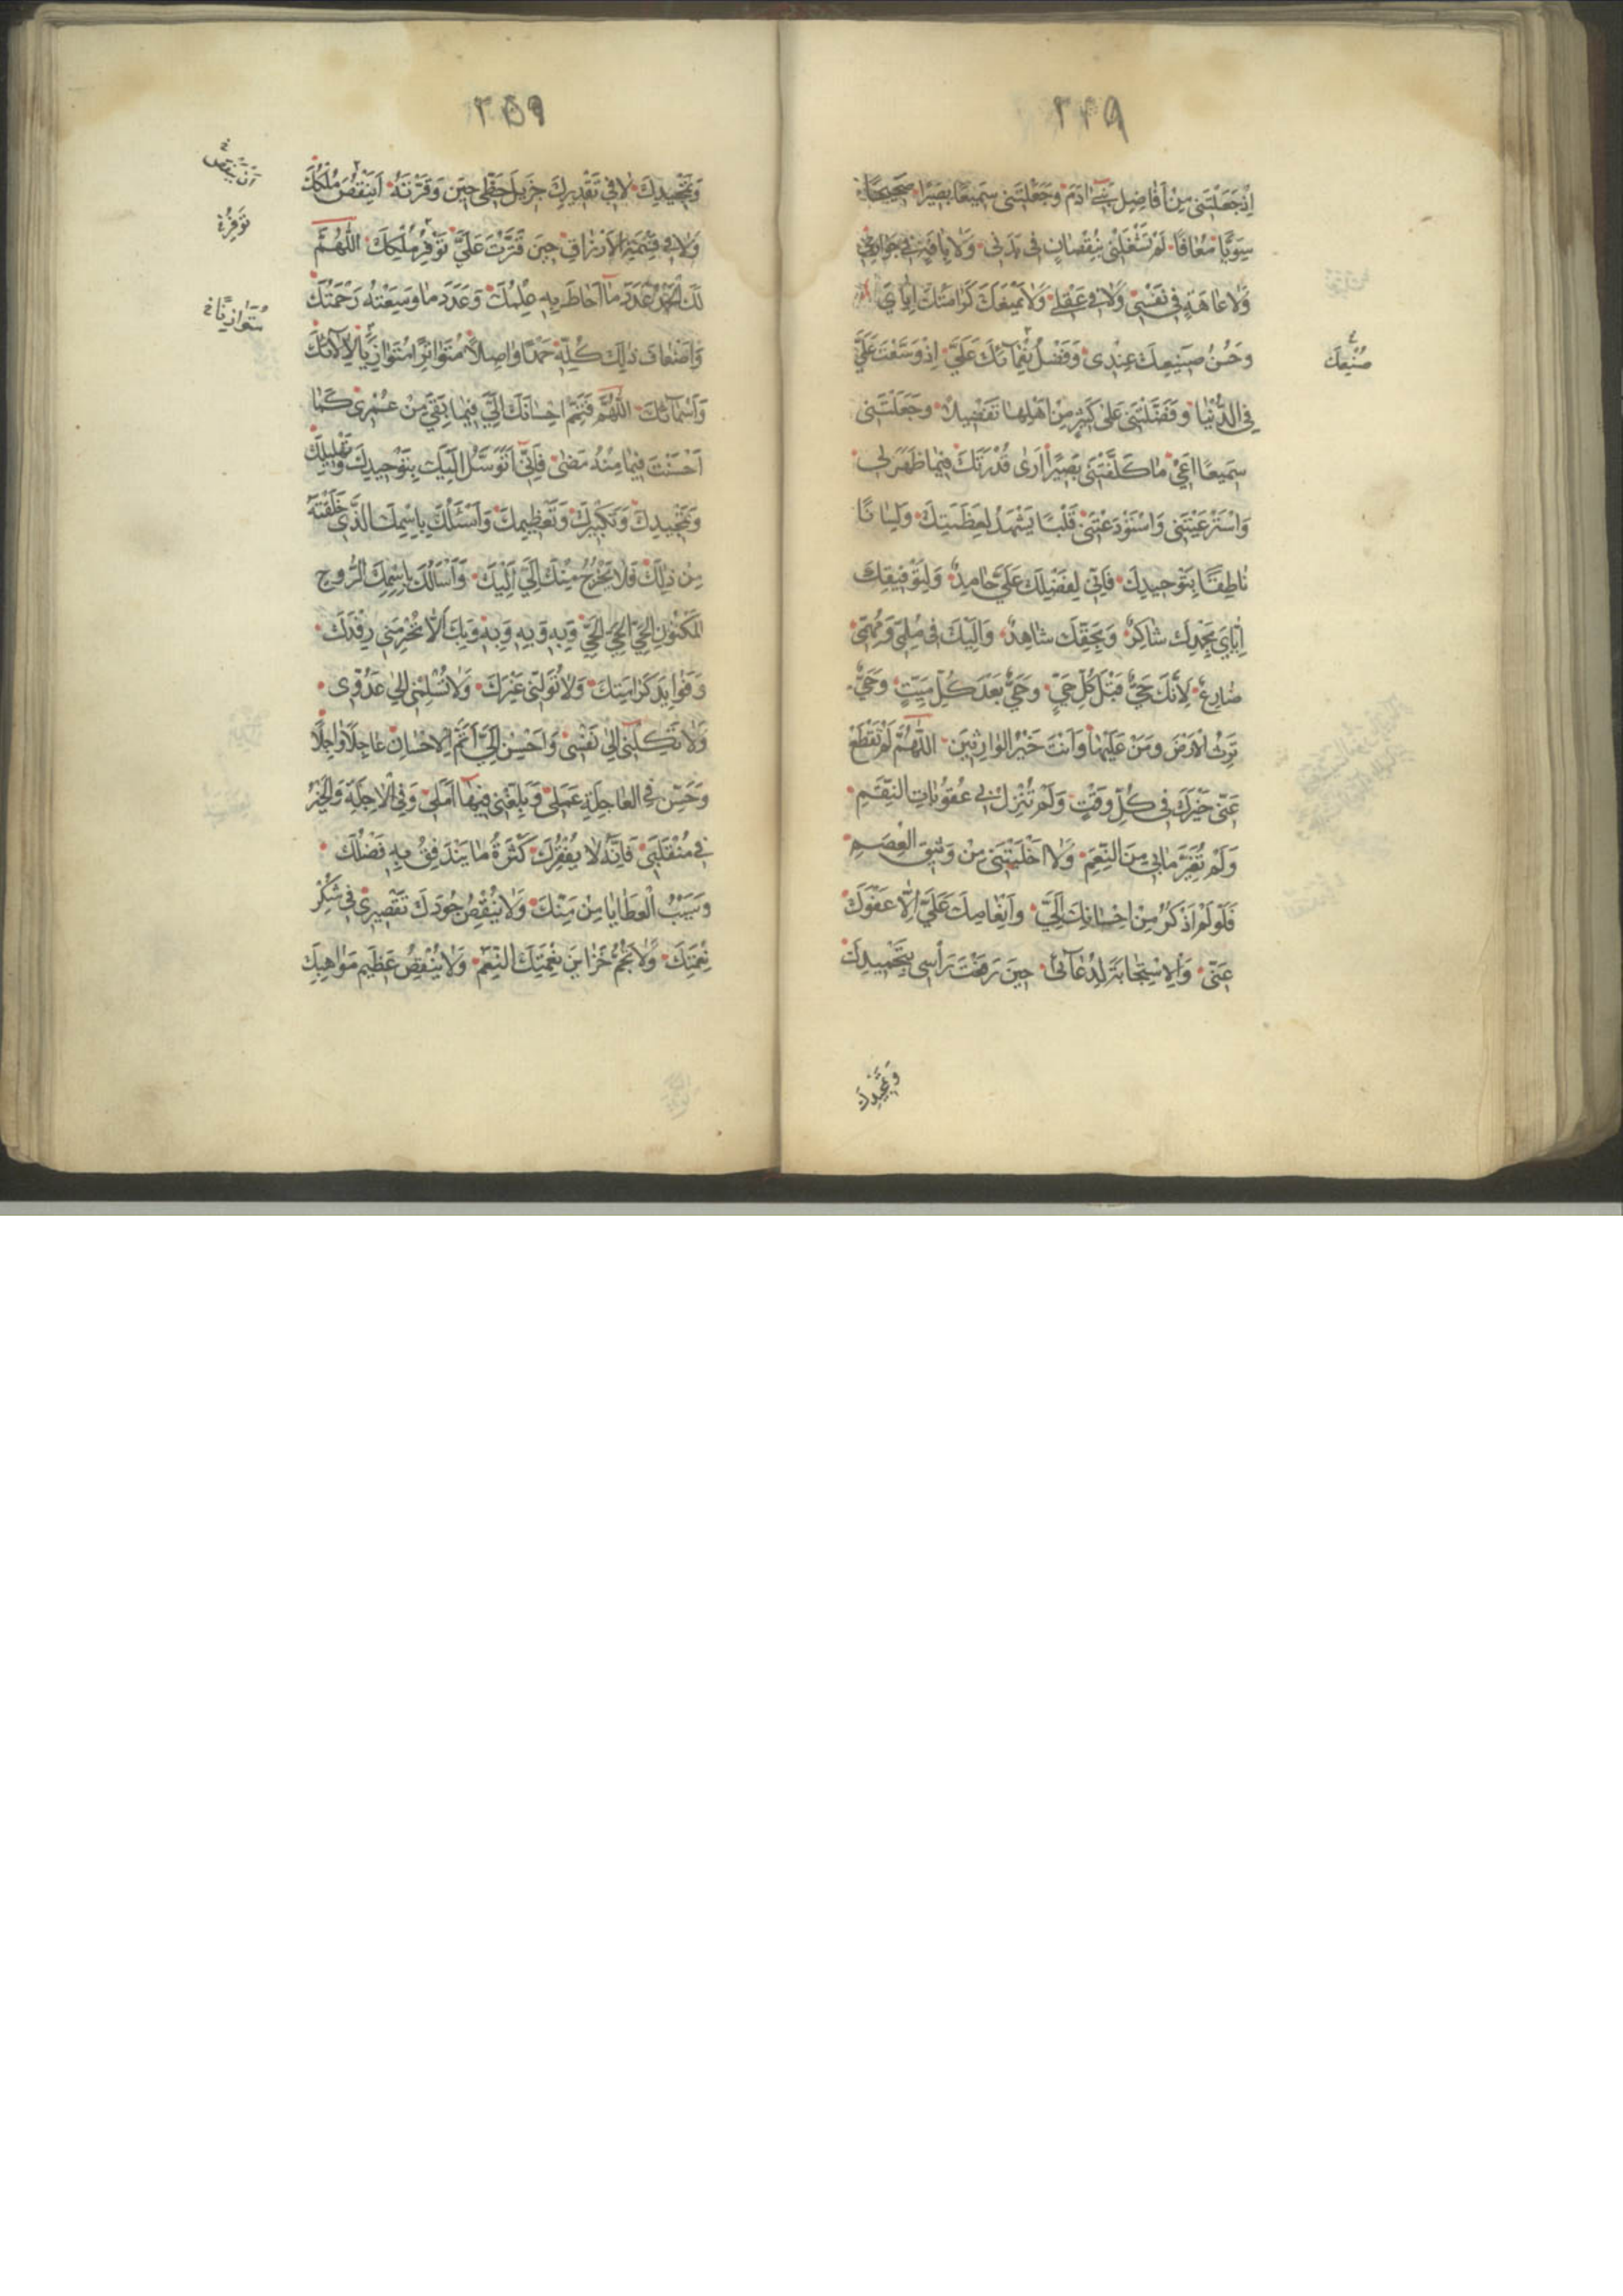 ٢٤٩
اِذْ جَعَلْتَنى مِنْ اَفاضِلِ بَنى ادَمَ وَجَعَلْتَنى سَميعًا بَصيرًا صَحيحًا
سَوِيًّا مُعافًا لَمْ تَشْغَلْنى بِنُقْصانٍ فى بَدَنى وَلا بِافَةٍ فى جَوارِحى
وَلا عاهَةٍ فى نَفْسى وَلا فى عَقْلى وَلا يَمْنَعْكَ كَرامَتُكَ اِيّاىَ
وَحُسْنُ صَنيعِكَ عِنْدى وَفَضْلُ نَعْمآئِكَ عَلَىَّ اِذْ وَسَّعْتَ عَلَىَّ
صُنْعِكَ
فِى الدُّنْيا وَفَضَّلْتَنى عَلى كَثيرٍ مِنْ اَهْلِها تَفْضيلًا وَجَعَلْتَنى
سَميعًا اَعى ما كَلَّفْتَنى بَصيرًا اَرى قُدْرَتَكَ فيما ظَهَرَ لى
وَاسْتَرْعَيْتَنى وَاسْتَوْدَعْتَنى قَلْبًا يَشْهَدُ لِعَظَمَتِكَ وَلِسانًا
ناطِقًا بِتَوْحيدِكَ فَاِنّى لِفَضْلِكَ عَلَىَّ حامِدٌ وَلِتَوْفيقِكَ
اِيّاىَ بِحَمْدِكَ شاكِرٌ وَبِحَقِّكَ شاهِدٌ وَاِلَيْكَ فى مُلِمّى وَمُهِمّى
ضارِعٌ لِاَنَّكَ حَىٌّ قَبْلَ كُلِّ حَىٍّ وَحَىٌّ بَعْدَ كُلِّ مَيِّتٍ وَحَىٌّ
تَرِثُ الْاَرْضَ وَمَنْ عَلَيْها وَاَنْتَ خَيْرُ الْوارِثينَ اَللّهُمَّ لَمْ تَقْطَعْ
عَنّى خَيْرَكَ فى كُلِّ وَقْتٍ وَلَمْ تُنْزِلْ بى عُقُوباتِ النِّقَمِ
وَلَمْ تُغَيِّرْ مابى مِنَ النِّعَمِ وَلا اَخْلَيْتَنى مِنْ وَثيقِ الْعِصَمِ
فَلَوْ لَمْ اَذْكُرْ مِنْ اِحْسانِكَ اِلَىَّ وَاِنْعامِكَ عَلَىَّ اِلّا عَفْوَكَ
عَنّى وَالْاِسْتِجابَةَ لِدُعآئى حينَ رَفَعْتُ رَأْسى بِتَحْميدِكَ
وَتَمْجيدِكَ
٢٥٩
وَتَمْجيدِكَ لا فى تَقْديرِكَ جَزيلَ حَظّى حينَ وَفَّرْتَهُ اَيَنْقُصُ مُلْكَكَ
اَنْ يَنْقُصَ
وَلا فى قِسْمَةِ الْاَرْزاقِ حينَ قَتَّرْتَ عَلَىَّ تَوَفَّرَ مُلْكُكَ اَللّهُمَّ
لَكَ الْحَمْدُ عَدَدَ ما اَحاطَ بِهِ عِلْمُكَ وَعَدَدَ ما وَسِعَتْهُ رَحْمَتُكَ
وَاَضْعافَ ذلِكَ كُلِّهِ حَمْدًا واصِلًا مُتَواتِرًا مُتَوازِيًا لِالآئِكَ
مُتَوازِيًا
وَاَسْمآئِكَ اَللّهُمَّ فَتَمِّمْ اِحْسانَكَ اِلَىَّ فيما بَقِىَ مِنْ عُمْرى كَما
اَحْسَنْتَ فيما مِنْهُ مَضى فَاِنّى اَتَوَسَّلُ اِلَيْكَ بِتَوْحيدِكَ وَتَهْليلِكَ
وَتَمْجيدِكَ وَتَكْبيرِكَ وَتَعْظيمِكَ وَاَسْئَلُكَ بِاسْمِكَ الَّذى خَلَقْتَهُ
مِنْ ذلِكَ فَلا يَخْرُجُ مِنْكَ اِلّا اِلَيْكَ وَاَسْاَلُكَ بِاسْمِكَ الرُّوحِ
الْمَكْنُونِ الْحَىِّ الْحَىِّ الْحَىِّ وَبِهِ وَبِهِ وَبِهِ وَبِكَ اَلّا تَحْرِمَنى رِفْدَكَ
وَفَوائِدَ كَرامَتِكَ وَلا تُوَلِّنى غَيْرَكَ وَلا تُسْلِمْنى اِلى عَدُوّى
وَلا تَكِلْنى اِلى نَفْسى وَاَحْسِنْ اِلَىَّ اَتَمَّ الْاِحْسانِ عاجِلًا وَاجِلًا
وَحَسِّنْ فِى الْعاجِلَةِ عَمَلى وَبَلِّغْنى فيها اَمَلى وَفِى الْاجِلَةِ وَالْخَيْرَ
فى مُنْقَلَبى فَاِنَّهُ لا يُفْقِرُكَ كَثْرَةُ ما يَنْدَفِقُ بِهِ فَضْلُكَ
وَسَيْبُ الْعَطايا مِنْ مَنِّكَ وَلا يُنْقِصُ جُودَكَ تَقْصيرى فى شُكْرِ
نِعْمَتِكَ وَلا تُجِمُّ خَزائِنَ نِعْمَتِكَ النِّعَمُ وَلا يُنْقِصُ عَظيمَ مَواهِبِكَ